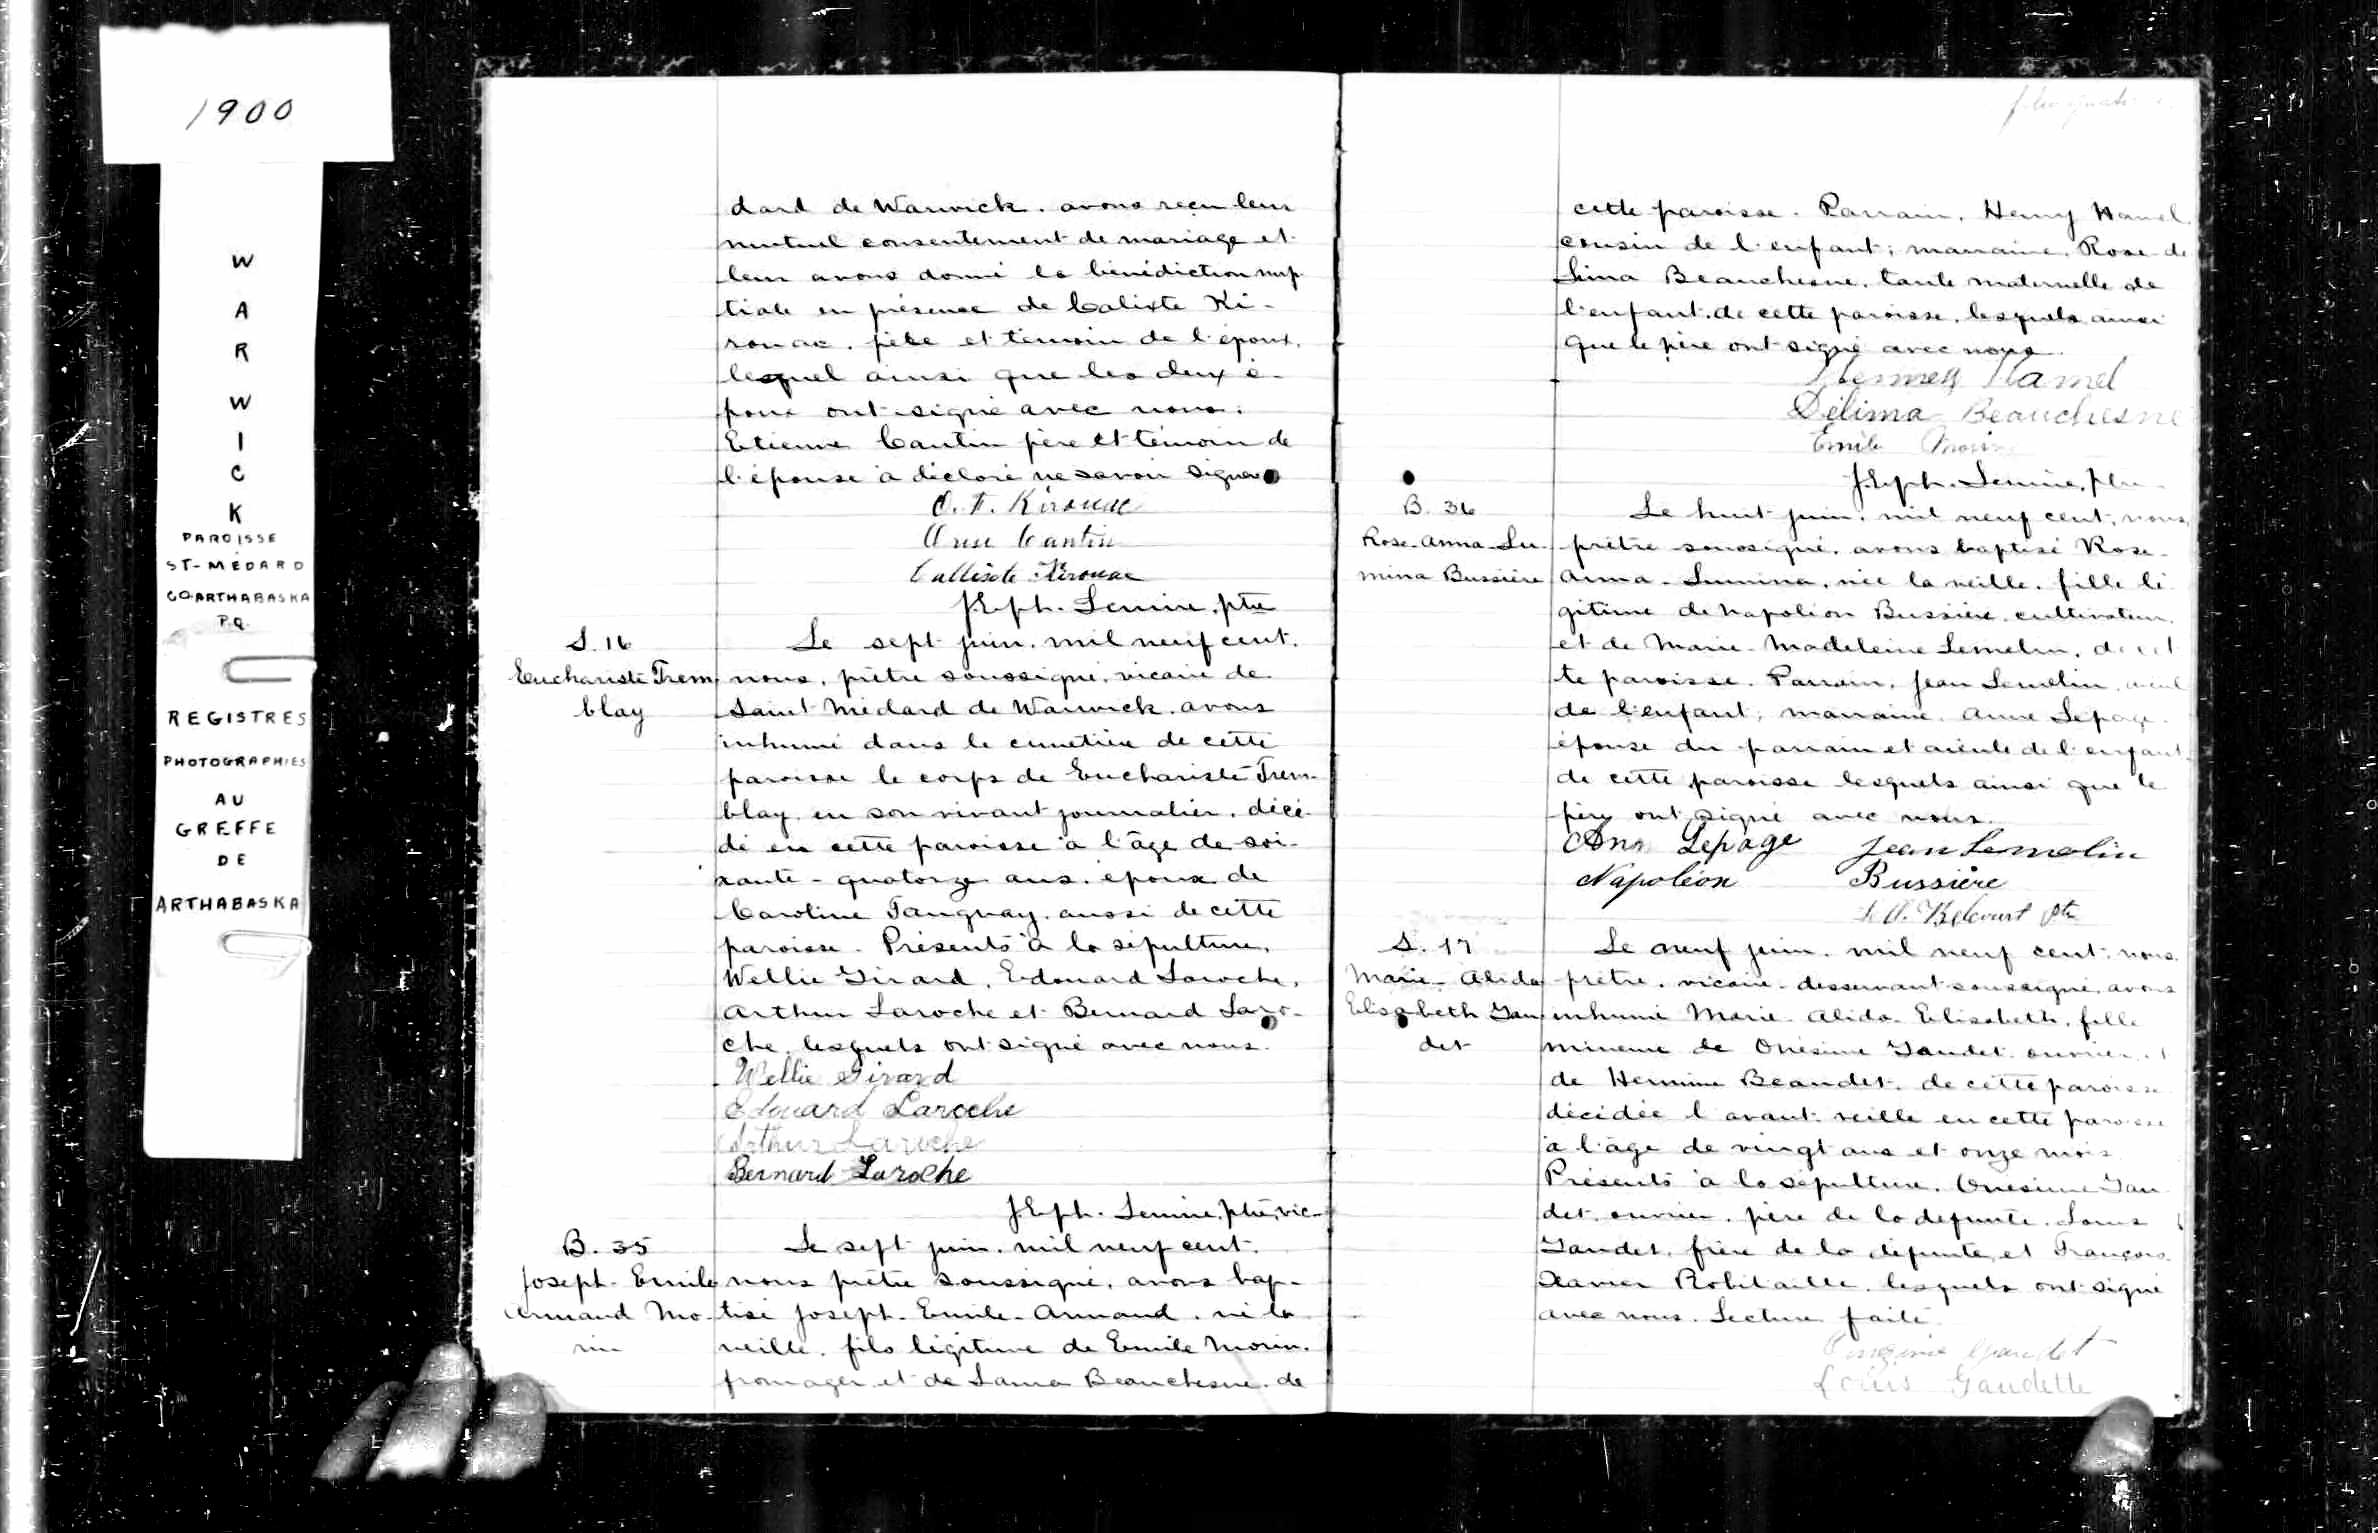 1900
W
A
R
W
I
C
K
PAROISSE
ST-MÉDARD
CO-ARTHABASKA
P.Q.
REGISTRES
PHOTOGRAPHIES
AU
GREFFE
DE
ARTHABASKA
dard de Warwick. avons reçu leur
mutuel consentement de mariage et
leur avons donné la bénédiction nup-
tiale en présence de Calixte Ki-
rouac. père et témoin de l'époux,
lesquel ainsi que les deux é-
poux ont signé avec nous.
Etienne Cantin père et témoin de
l'épouse a déclaré ne savoir signer
Cantin
Callixte Kirouac
J. Eph. Lemire, ptre
S. 16
Euchariste Trem
blay
Le sept juin. mil neuf cent.
nous, prêtre soussigné, vicaire de
Saint Médard de Warwick. avons
inhumé dans le cimetière de cette
paroisse le corps de Euchariste Trem-
blay, en son vivant journalier, décé-
dé en cette paroisse à l'âge de soi-
xante-quatorze ans. époux de
Caroline Tanguay. aussi de cette
paroisse. Présents à la sépulture,
Wellie Girard, Edouard Laroche,
Arthur Laroche et Bernard Laro-
che, lesquels ont signé avec nous.
Wellie Girard
Edouard Laroche
Arthur Laroche
Bernard Laroche
J. Eph. Lemire, ptre, vic-
B. 35
Joseph-Emile
Armand Mo-
rin
Le sept juin. mil neuf cent.
nous prêtre soussigné, avons bap-
tisé Joseph-Emile-Armand. né la
veille. fils légitime de Emile Morin.
fromager et de Laura Beauchesne. de
cette paroisse. Parrain, Henry Hamel.
cousin de l'enfant; marraine, Rose-de-
lima Beauchesne, tante maternelle de
l'enfant. de cette paroisse, lesquels ainsi
que le père ont signé avec nous
Hamel
Délima Beauchesne
Emile Morin
J. Eph. Lemire, ptre
B. 36
Rose-Anna-Lu-
mina Bussière
Le huit juin. mil neuf cent, nous,
prêtre soussigné, avons baptisé Rose-
Anna-Lumina, née la veille. fille lé-
gitime de Napoléon Bussière, cultivateur,
et de Marie-Madeleine Lemelin, de cet
te paroisse. Parrain, Jean Lemelin, aieul
de l'enfant; marraine, Anne Lepage.
épouse du parrain et aieule de l'enfant.
de cette paroisse lesquels ainsi que le
père ont signé avec nous.
Ann Lepage Jean Lemelin
Napoléon Bussière
Belcourt ptre
S. 17
Marie-Alida
Elisabeth Gau
det
Le neuf juin. mil neuf cent, nous,
prêtre, vicaire-desservant soussigné, avons
inhumé Marie-Alida-Elisabeth, fille
mineure de Onésime Gaudet, ouvrier, et
de Hermine Beaudet, de cette paroisse
décédée l'avant-veille en cette paroisse
à l'âge de vingt ans et onze mois
Présents à la sépulture, Onésime Gau
det, ouvrier. père de la défunte. Louis
Gaudet, frère de la défunte, et François
Xavier Robitaille, lesquels ont signé
avec nous. Lecture faite
Gaudet
Louis Gaudette